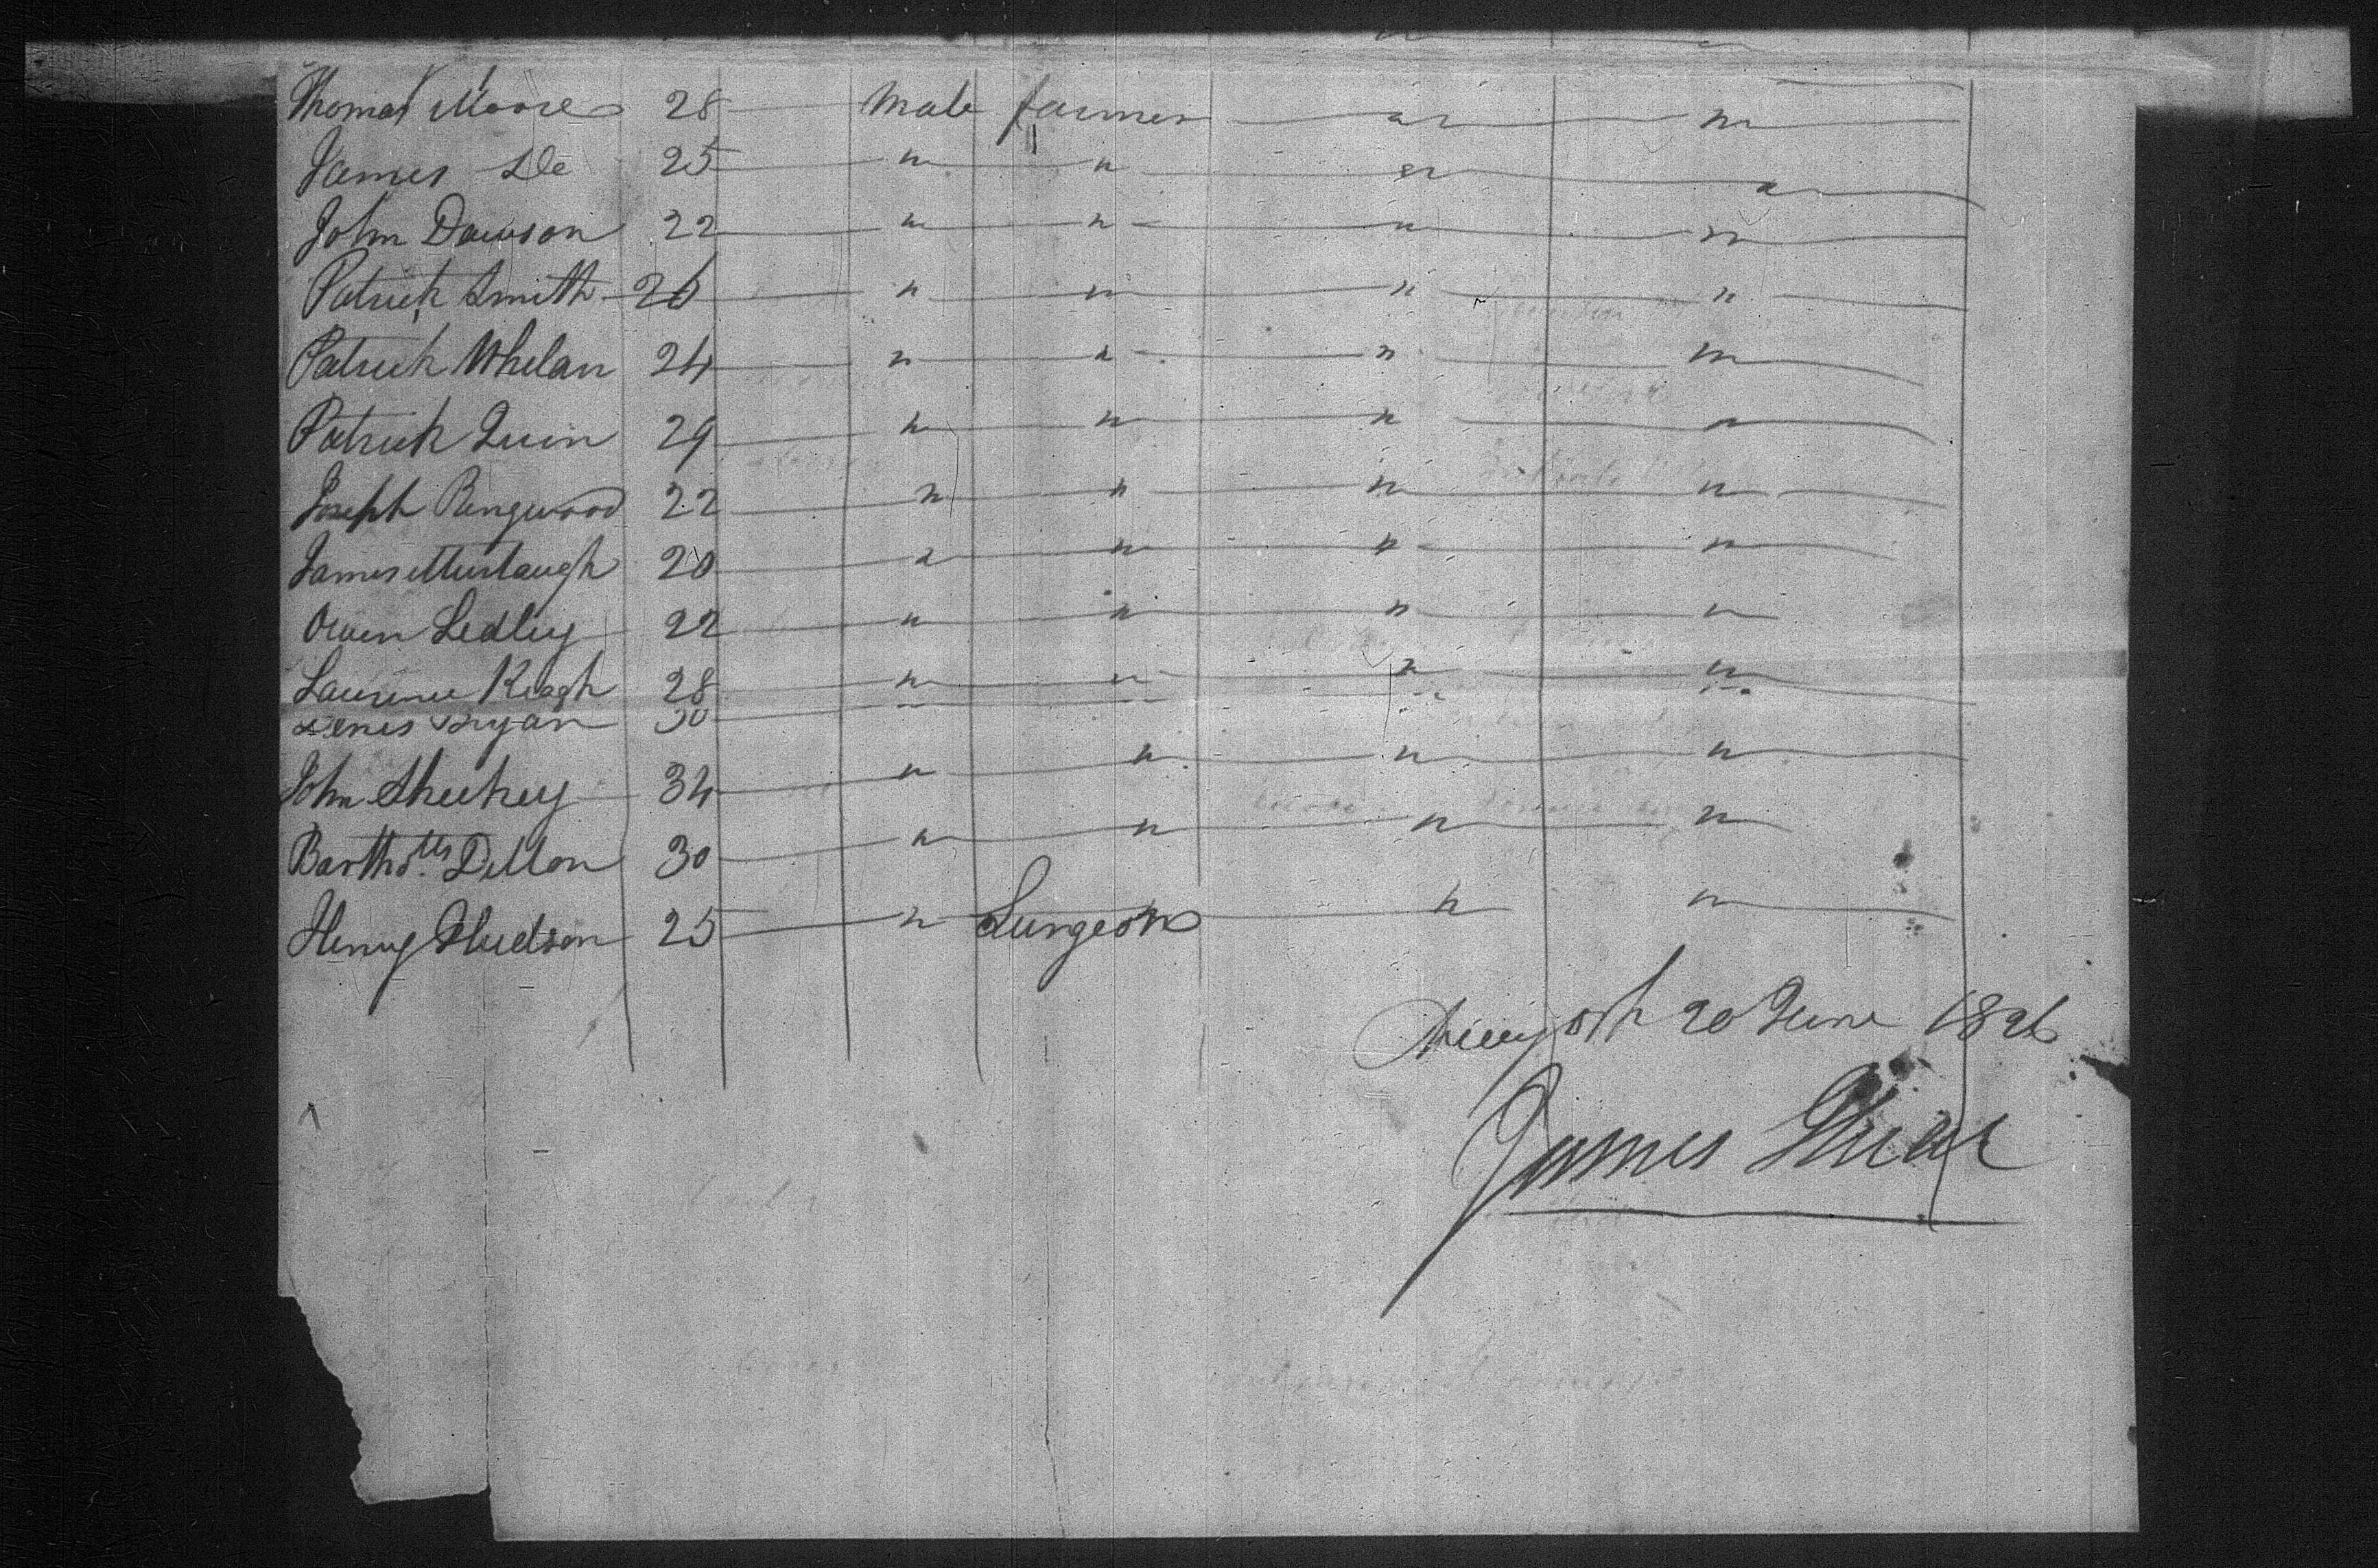 Thomas Moore 28 Male farmer " "
James Do 25 " " " "
John Dawson 22 " " " "
Patrick Smith 26 " " " "
Patrick Whelan 24 " " " "
Patrick Quin 29 " " " "
Joseph Ringwood 22 " " " "
James Murtaugh 20 " " " "
Owen Ledley 22 " " " "
Laurence Keogh 28 " " " "
Denis Bryan 30 " " " "
John Sheehey 34 " " " "
Barthols Dillon 30 " " " "
Henry Hudson 25 " Surgeon " "
Newyork 20 June 1826
James